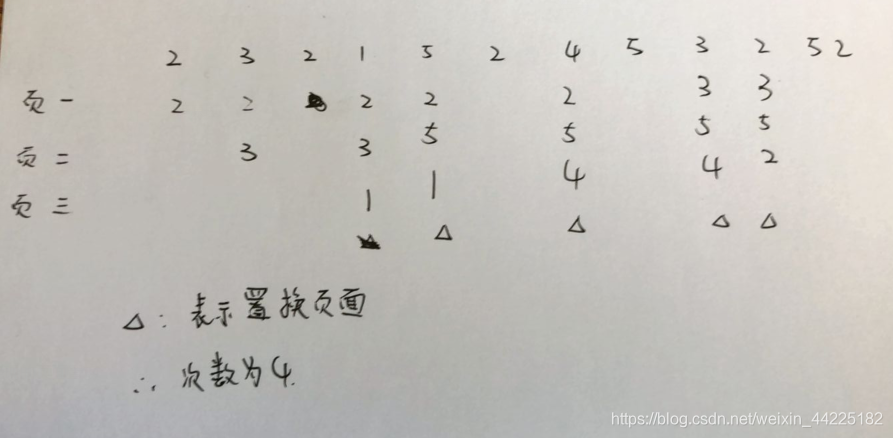 2 3 2 1 5 2 4 5 3 2 5 2
页一 2 2 2 2 2 3 3
页二 3 3 5 5 5 5
页三 1 1 4 4 2
△ △ △ △
△: 表示置换页面
∴ 次数为4.
https://blog.csdn.net/weixin_44225182